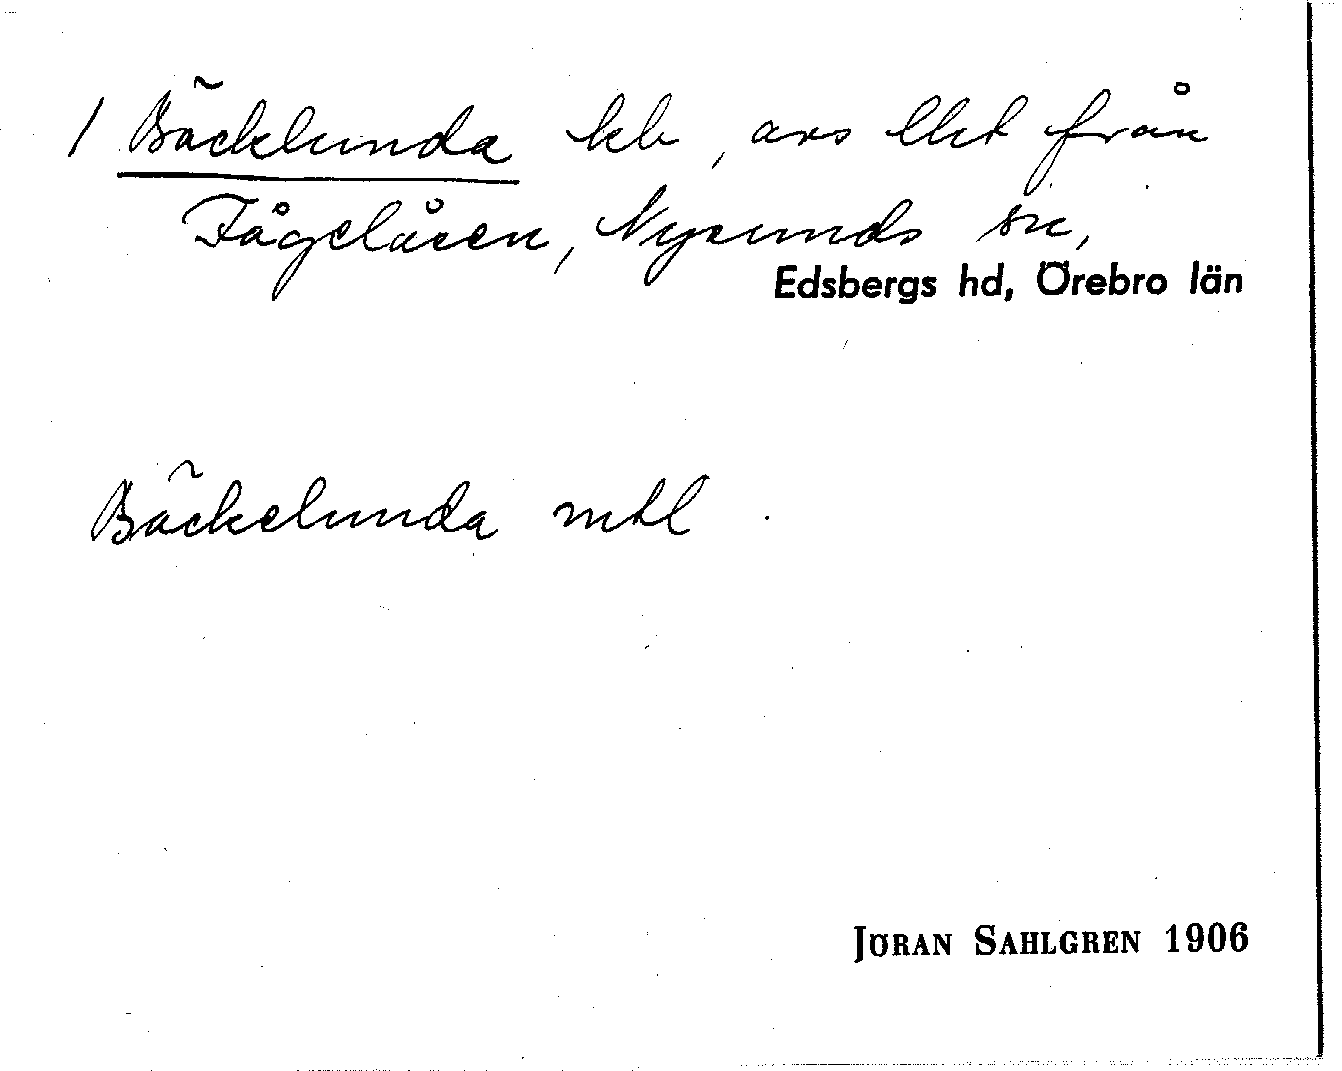 1 Bäcklunda hb, avs Urk från
Fågelåsen, Nysunds sn,
Edsbergs hd, Örebro län
Bäckelunda mtl.
JÖRAN SAHLGREN 1906